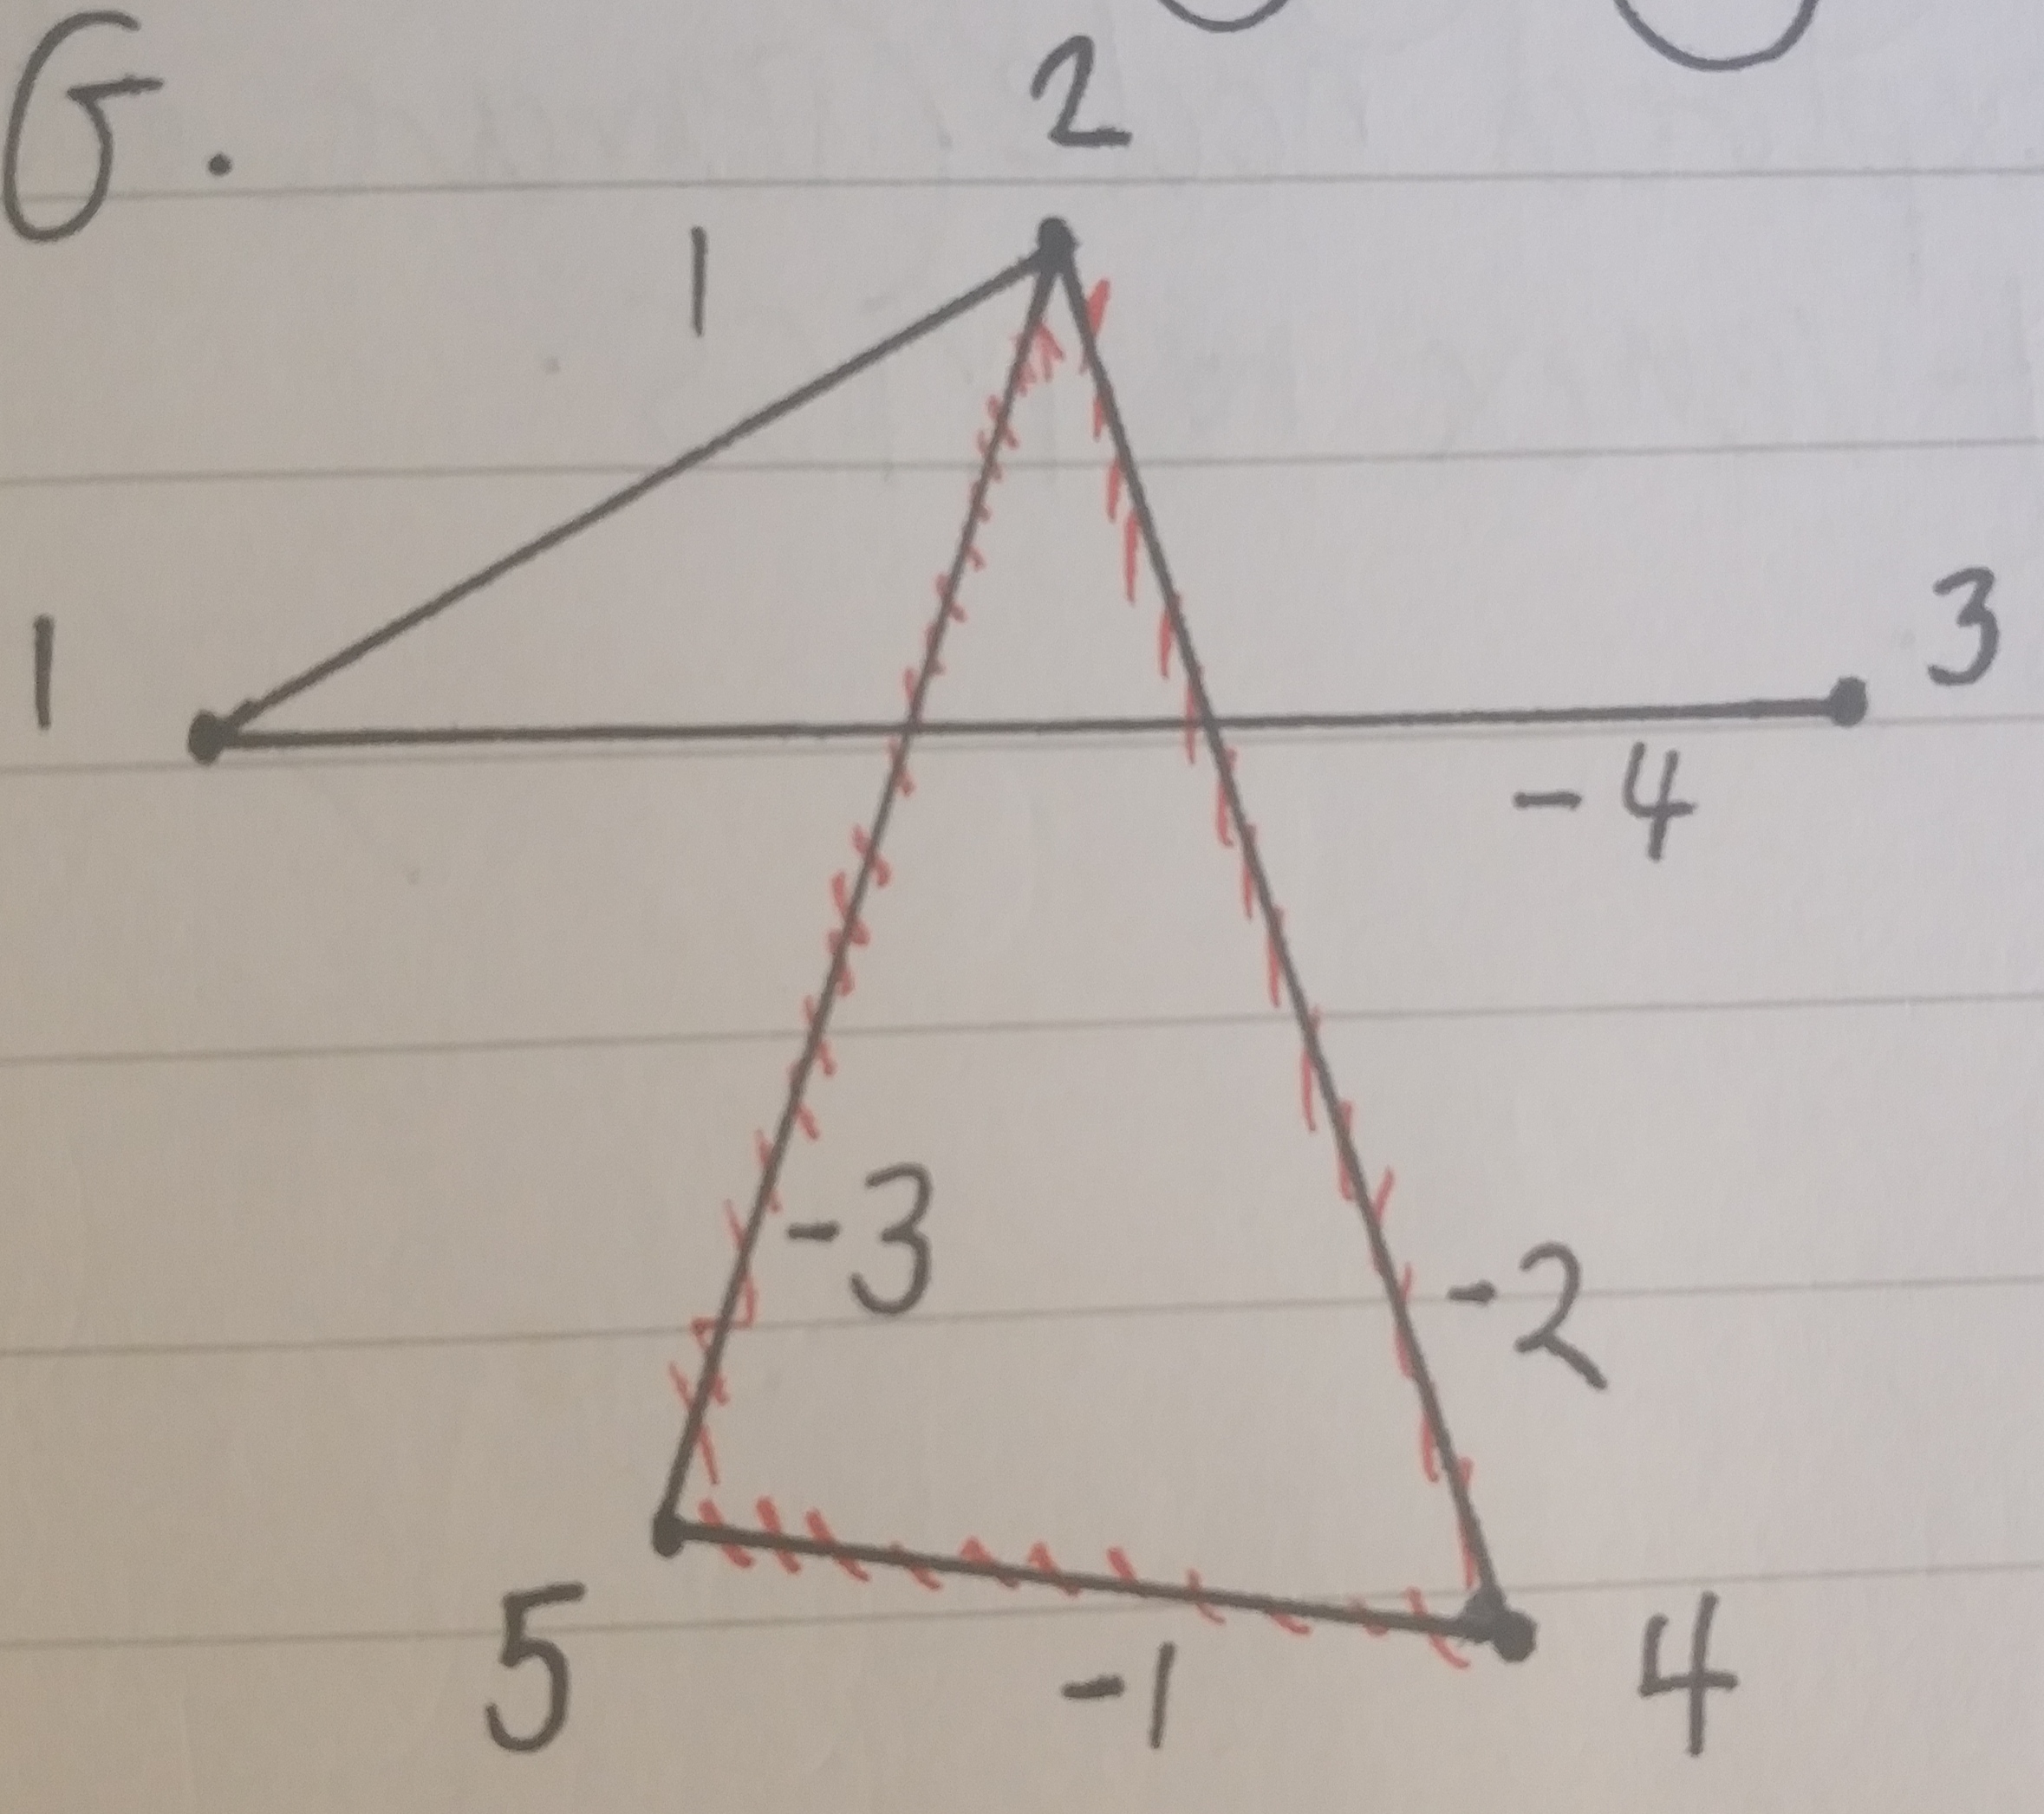 G.
2
1
1
3
-4
-3
-2
5
-1
4